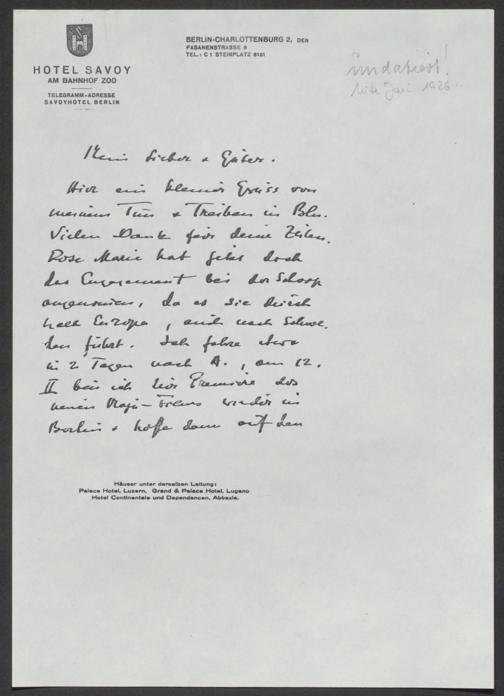 HOTEL SAVOY
AM BAHNHOF ZOO
TELEGRAMM-ADRESSE
SAVOYHOTEL BERLIN
BERLIN-CHARLOTTENBURG 2, DEN
FASANENSTRASSE 9
TEL.: C 1 STEINPLATZ 8151
undatiert!
1926
Mein lieber
Hier ein kleiner Gruss von
meinem Tun & Treiben in Bln.
Vielen Dank für deine Zeilen.
Rose Marie hat jetzt doch
das Engagement bei der
angenommen, da es sie durch
halb Europa, auch nach Schwe-
den führt. Ich fahre
in 2 Tagen nach A., am 12.
II bin ich zur Premiere des
neuen wieder in
Berlin & hoffe dann auf den
Häuser unter derselben Leitung:
Palace Hotel, Luzern, Grand & Palace Hotel, Lugano
Hotel Continentale und Dependancen, Abbazia.